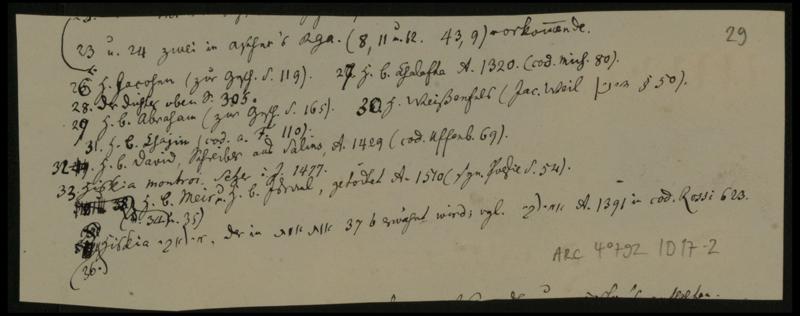 29
23 u. 24 zwei in Ascher's Rga. (8, 11 u. 12. 43, 9) vorkommende.
26 H. Hacohen (zur Gesch. S. 119). 27 H. b. Chalafta A. 1320. (cod. mich. 80).
28. der Dichter oben S. 305.
29 H. b. Abraham (zur Gesch. S. 165). 30 H. Weißenfels (Jac. Weil § 50).
31 H. b. Chajim (cod. a. F. 110).
32 H. b. David, Schreiber aus Salins, A. 1429 (cod. Uffenb. 69).
33. Hiskia montroi. Setzer i. J. 1477.
H. b. Meir u. H. b. Israel, getödtet A. 1510 (syn. Poesie S. 54).
(34 u. 35)
Hiskia der in 37 b erwähnt wird; vgl. A. 1391 in cod. Rossi 623.
(36.)
ARC 4°792 / D17-2